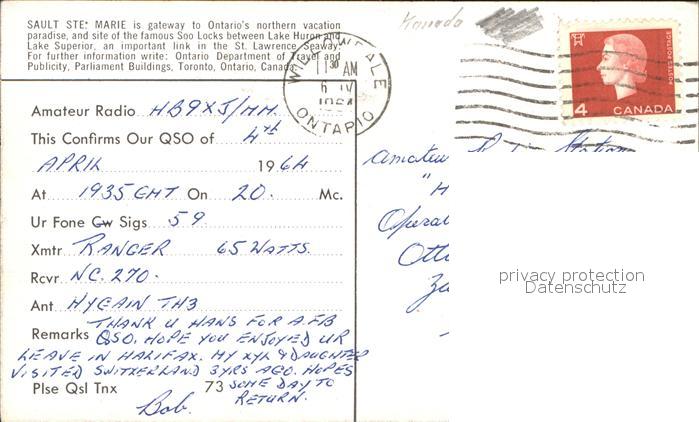 SAULT STE. MARIE is gateway to Ontario's northern vacation
paradise, and site of the famous Soo Locks between Lake Huron and
Lake Superior, an important link in the St. Lawrence Seaway.
For further information write: Ontario Department of Travel and
Publicity, Parliament Buildings, Toronto, Ontario, Canada.
Kanada
WILLOWDALE
11 30 AM
6 IV
1964
ONTARIO
POSTES POSTAGE
4 CANADA
Amateur Radio HB9XJ/MM.
This Confirms Our QSO of 4th
APRIL 1964
At 1935 GMT On 20. Mc.
Ur Fone Cw Sigs 59
Xmtr RANGER 65 WATTS.
Rcvr NC.270.
Ant HYGAIN TH3
Remarks THANK U HANS FOR A FB
QSO. HOPE YOU ENJOYED UR
LEAVE IN HALIFAX. MY XYL & DAUGHTER
VISITED SWITZERLAND 3 YRS AGO. HOPES
Plse Qsl Tnx 73 SOME DAY TO
RETURN.
Bob.
Amateu
"H
Operat
Otto
Zu
privacy protection
Datenschutz